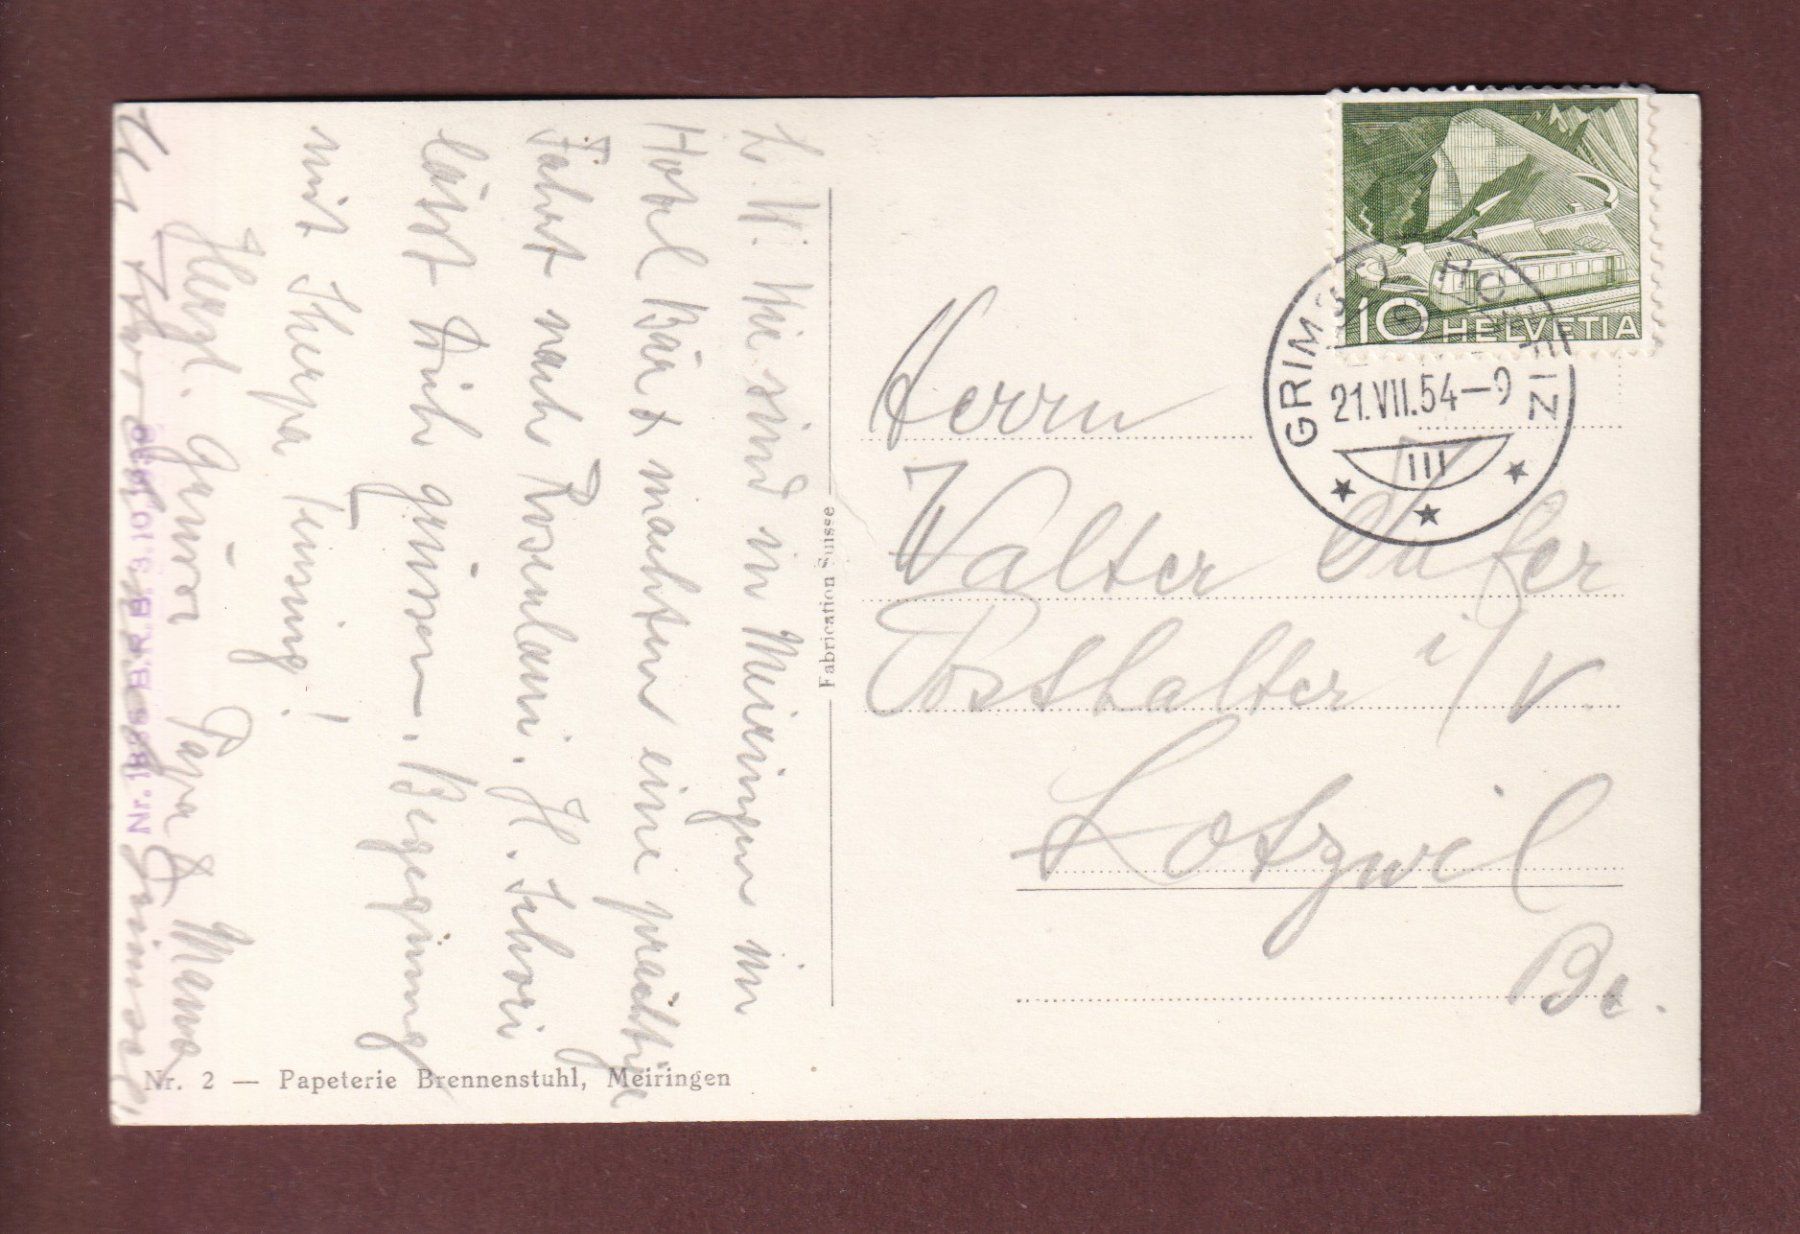 L. W. Wir sind in Meiringen im
Hotel Bär & machten eine prächtige
Fahrt nach Rosenlaui. H. Schori
lässt Dich grüssen. Begegnung
mit Sherpa Tensing!
Herzl. Grüsse Papa & Mama
Nr. 2 — Papeterie Brennenstuhl, Meiringen
Fabrication Suisse
10 HELVETIA
GRIMSEL HOSPIZ
21.VII.54—9
Herrn
Walter Käser
Posthalter i/V.
Lotzwil
Be.
B.R.B. 3.10.1939